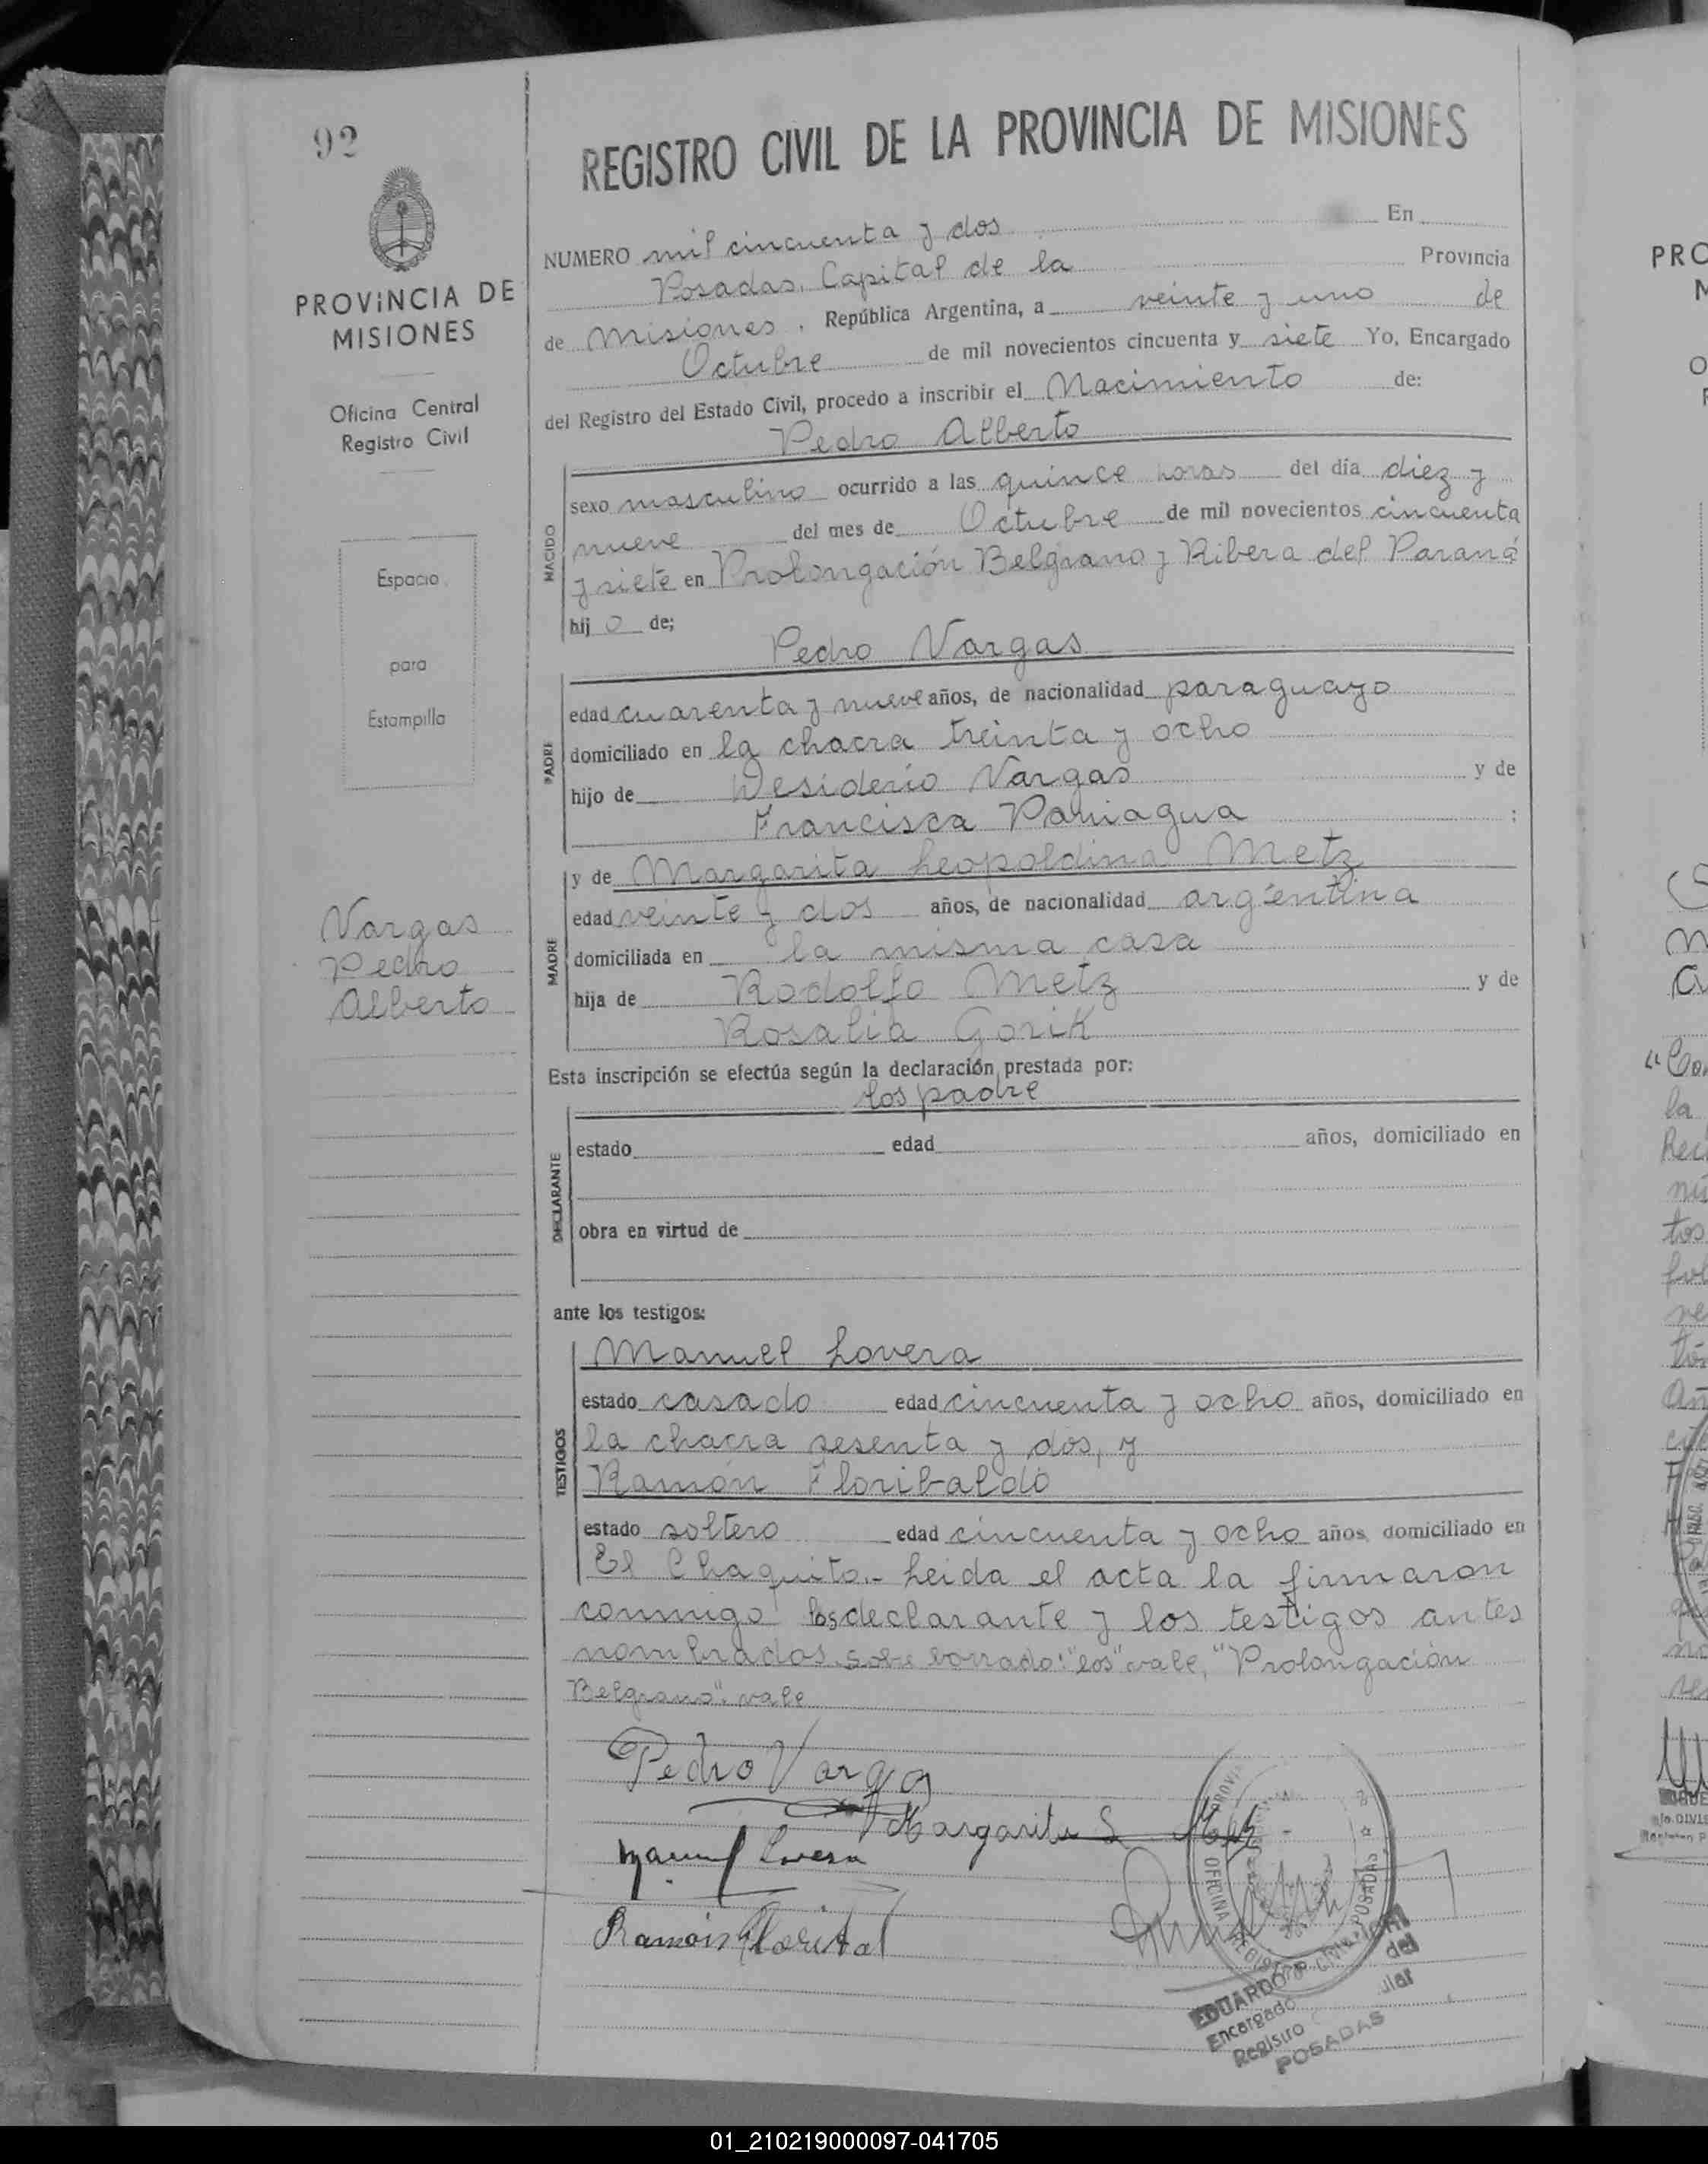 92
REGISTRO CIVIL DE LA PROVINCIA DE MISIONES
PROVINCIA DE
MISIONES
Oficina Central
Registro Civil
Espacio
para
Estampilla
Vargas
Pedro
Alberto
NUMERO mil cincuenta y dos En
Posadas, Capital de la Provincia
de Misiones, República Argentina, a veinte y uno de
Octubre de mil novecientos cincuenta y siete Yo, Encargado
del Registro del Estado Civil, procedo a inscribir el Nacimiento de:
Pedro Alberto
NACIDO
sexo masculino ocurrido a las quince horas del día diez y
nueve del mes de Octubre de mil novecientos cincuenta
y siete en Prolongación Belgrano y Ribera del Paraná
hij o de;
Pedro Vargas
PADRE
edad cuarenta y nueve años, de nacionalidad paraguayo
domiciliado en la chacra treinta y ocho
hijo de Desiderio Vargas y de
Francisca Paniagua ;
MADRE
y de Margarita Leopoldina Metz
edad veinte y dos años, de nacionalidad argentina
domiciliada en la misma casa
hija de Rodolfo Metz y de
Rosalia Gorik
Esta inscripción se efectúa según la declaración prestada por:
los padre
DECLARANTE
estado edad años, domiciliado en
obra en virtud de
ante los testigos:
TESTIGOS
Manuel Lovera
estado casado edad cincuenta y ocho años, domiciliado en
la chacra sesenta y dos, y
Ramón Floribaldo
estado soltero edad cincuenta y ocho años, domiciliado en
El Chaquito.- Leida el acta la firmaron
conmigo los declarante y los testigos antes
nombrados. Sobre borrado: "los" vale, "Prolongación
Belgrano". vale
Pedro Vargas
Margarita L Metz
Manuel Lovera
Ramón
OFICINA
POSADAS
EDUARDO
Encargado del
Registro
POSADAS
PRO
"Con
la
01_210219000097-041705